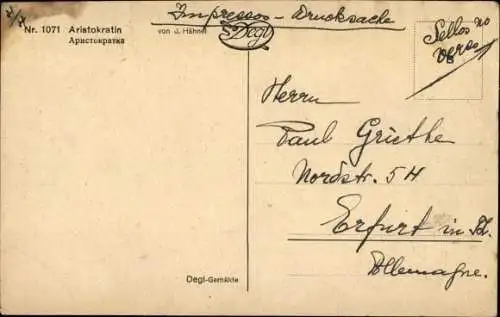 Impressos - Drucksache
Nr. 1071 Aristokratin
Аристократка
von J. Hähnel
Degi
Sellos no
verso
Herrn
Paul Griethe
Nordstr. 54
Erfurt in
Allemagne.
Degi-Gemälde